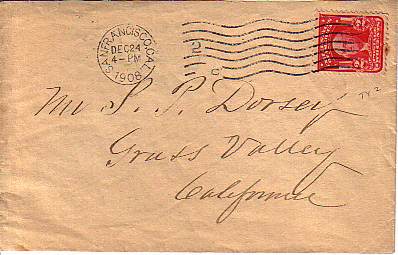 SAN FRANCISCO, CAL.
DEC 24
4 - PM
1908
Mr S. P. Dorsey
Grass Valley
California